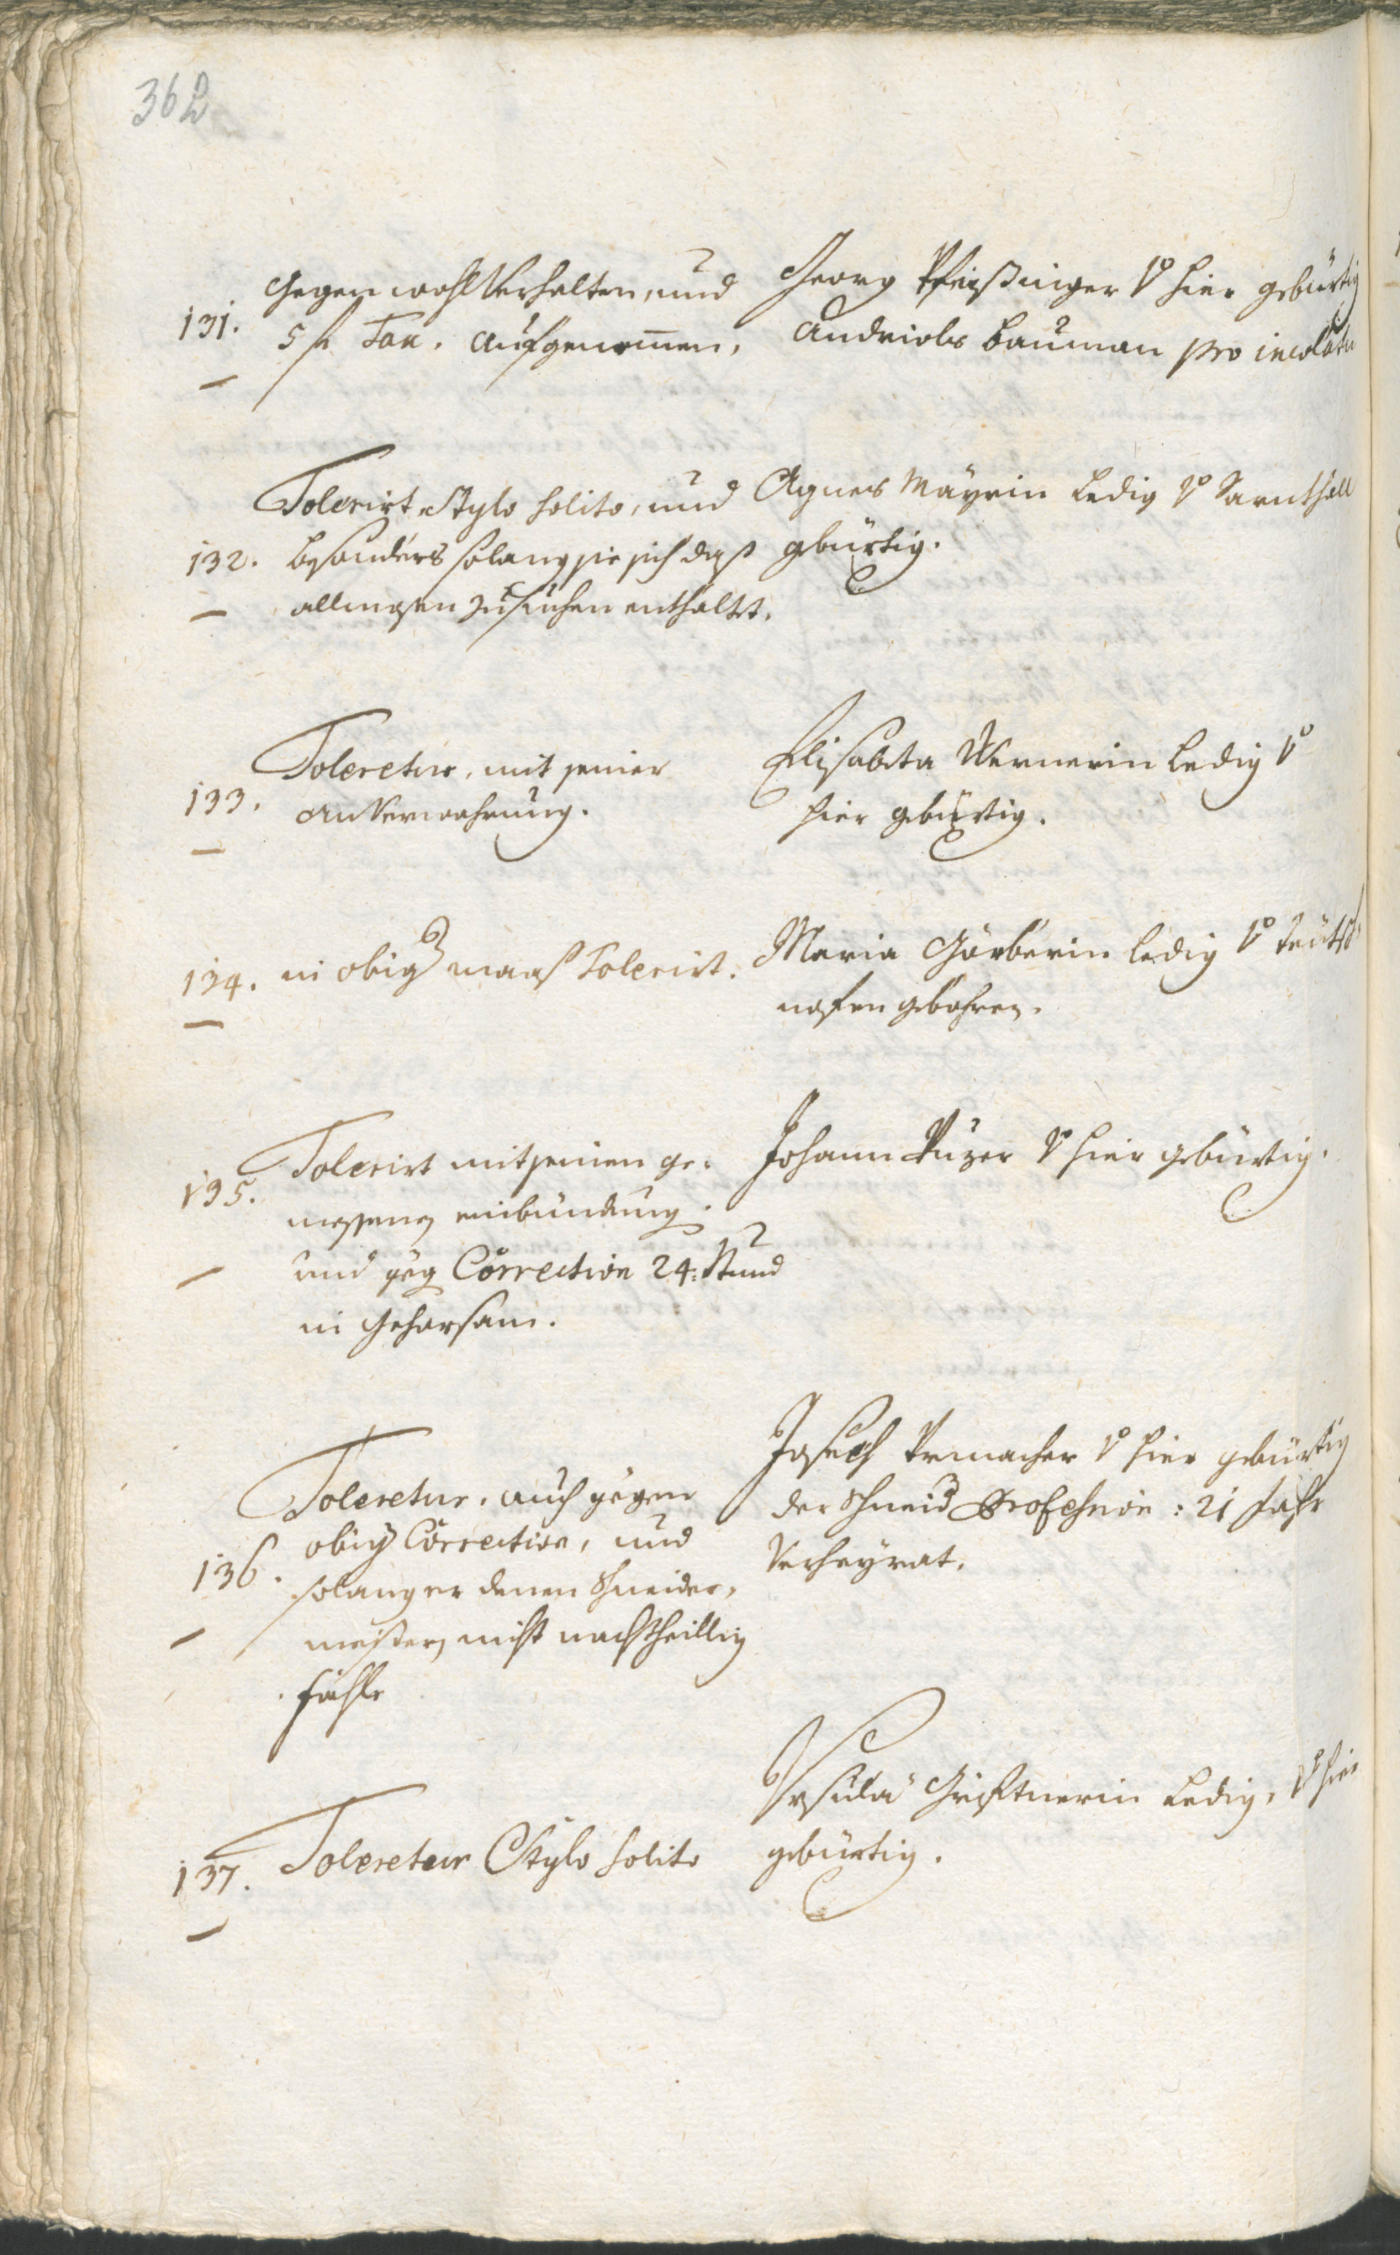 362
131.
Gegen wohlverhalten, und
5 f Tax. aufgenomen,
Georg Pfeißinger v hier gebürtig
Andriols bauman pro incolatu
132.
Tolerirt Stylo solito, und
besonders solang sie sich deß
allmosen zu suchen enthaltet.
Agnes Mayrin ledig v Sarnthall
gebürtig.
133.
Toleretur, mit seiner
Anverwahrung.
Elisabeta Wernerin ledig v
hier gebürtig.
134. in obig maaß Tolerirt.
Maria Gärberin ledig v teütsch
nofen gebohren.
135.
Tolerirt mit seinen ge¬
messenen einbündung
und geg Correction 24: Stund
in Gehorsam.
Johann Puzer v hier gebürtig.
136.
Toleretur, auch gegen
obig Correction, und
solang er denen Schneider,
meistern nicht nachtheillig
fühle
Joseph Premacher v hier gebürtig
der Schneid Profession: 21 Jahr
Verheyrat.
137. Toleretur Stylo solito
Ursula Gristnerin ledig, v hier
gebürtig.